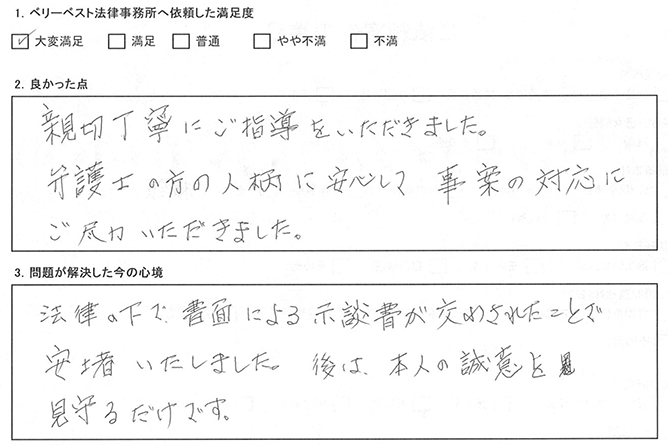 1. ベリーベスト法律事務所へ依頼した満足度
大変満足 満足 普通 やや不満 不満
2. 良かった点
親切丁寧にご指導をいただきました。
弁護士の方の人柄に安心して 事案の対応に
ご尽力いただきました。
3. 問題が解決した今の心境
法律の下で 書面による示談書が交めされたことで
安堵いたしました。後は、本人の誠意を
見守るだけです。